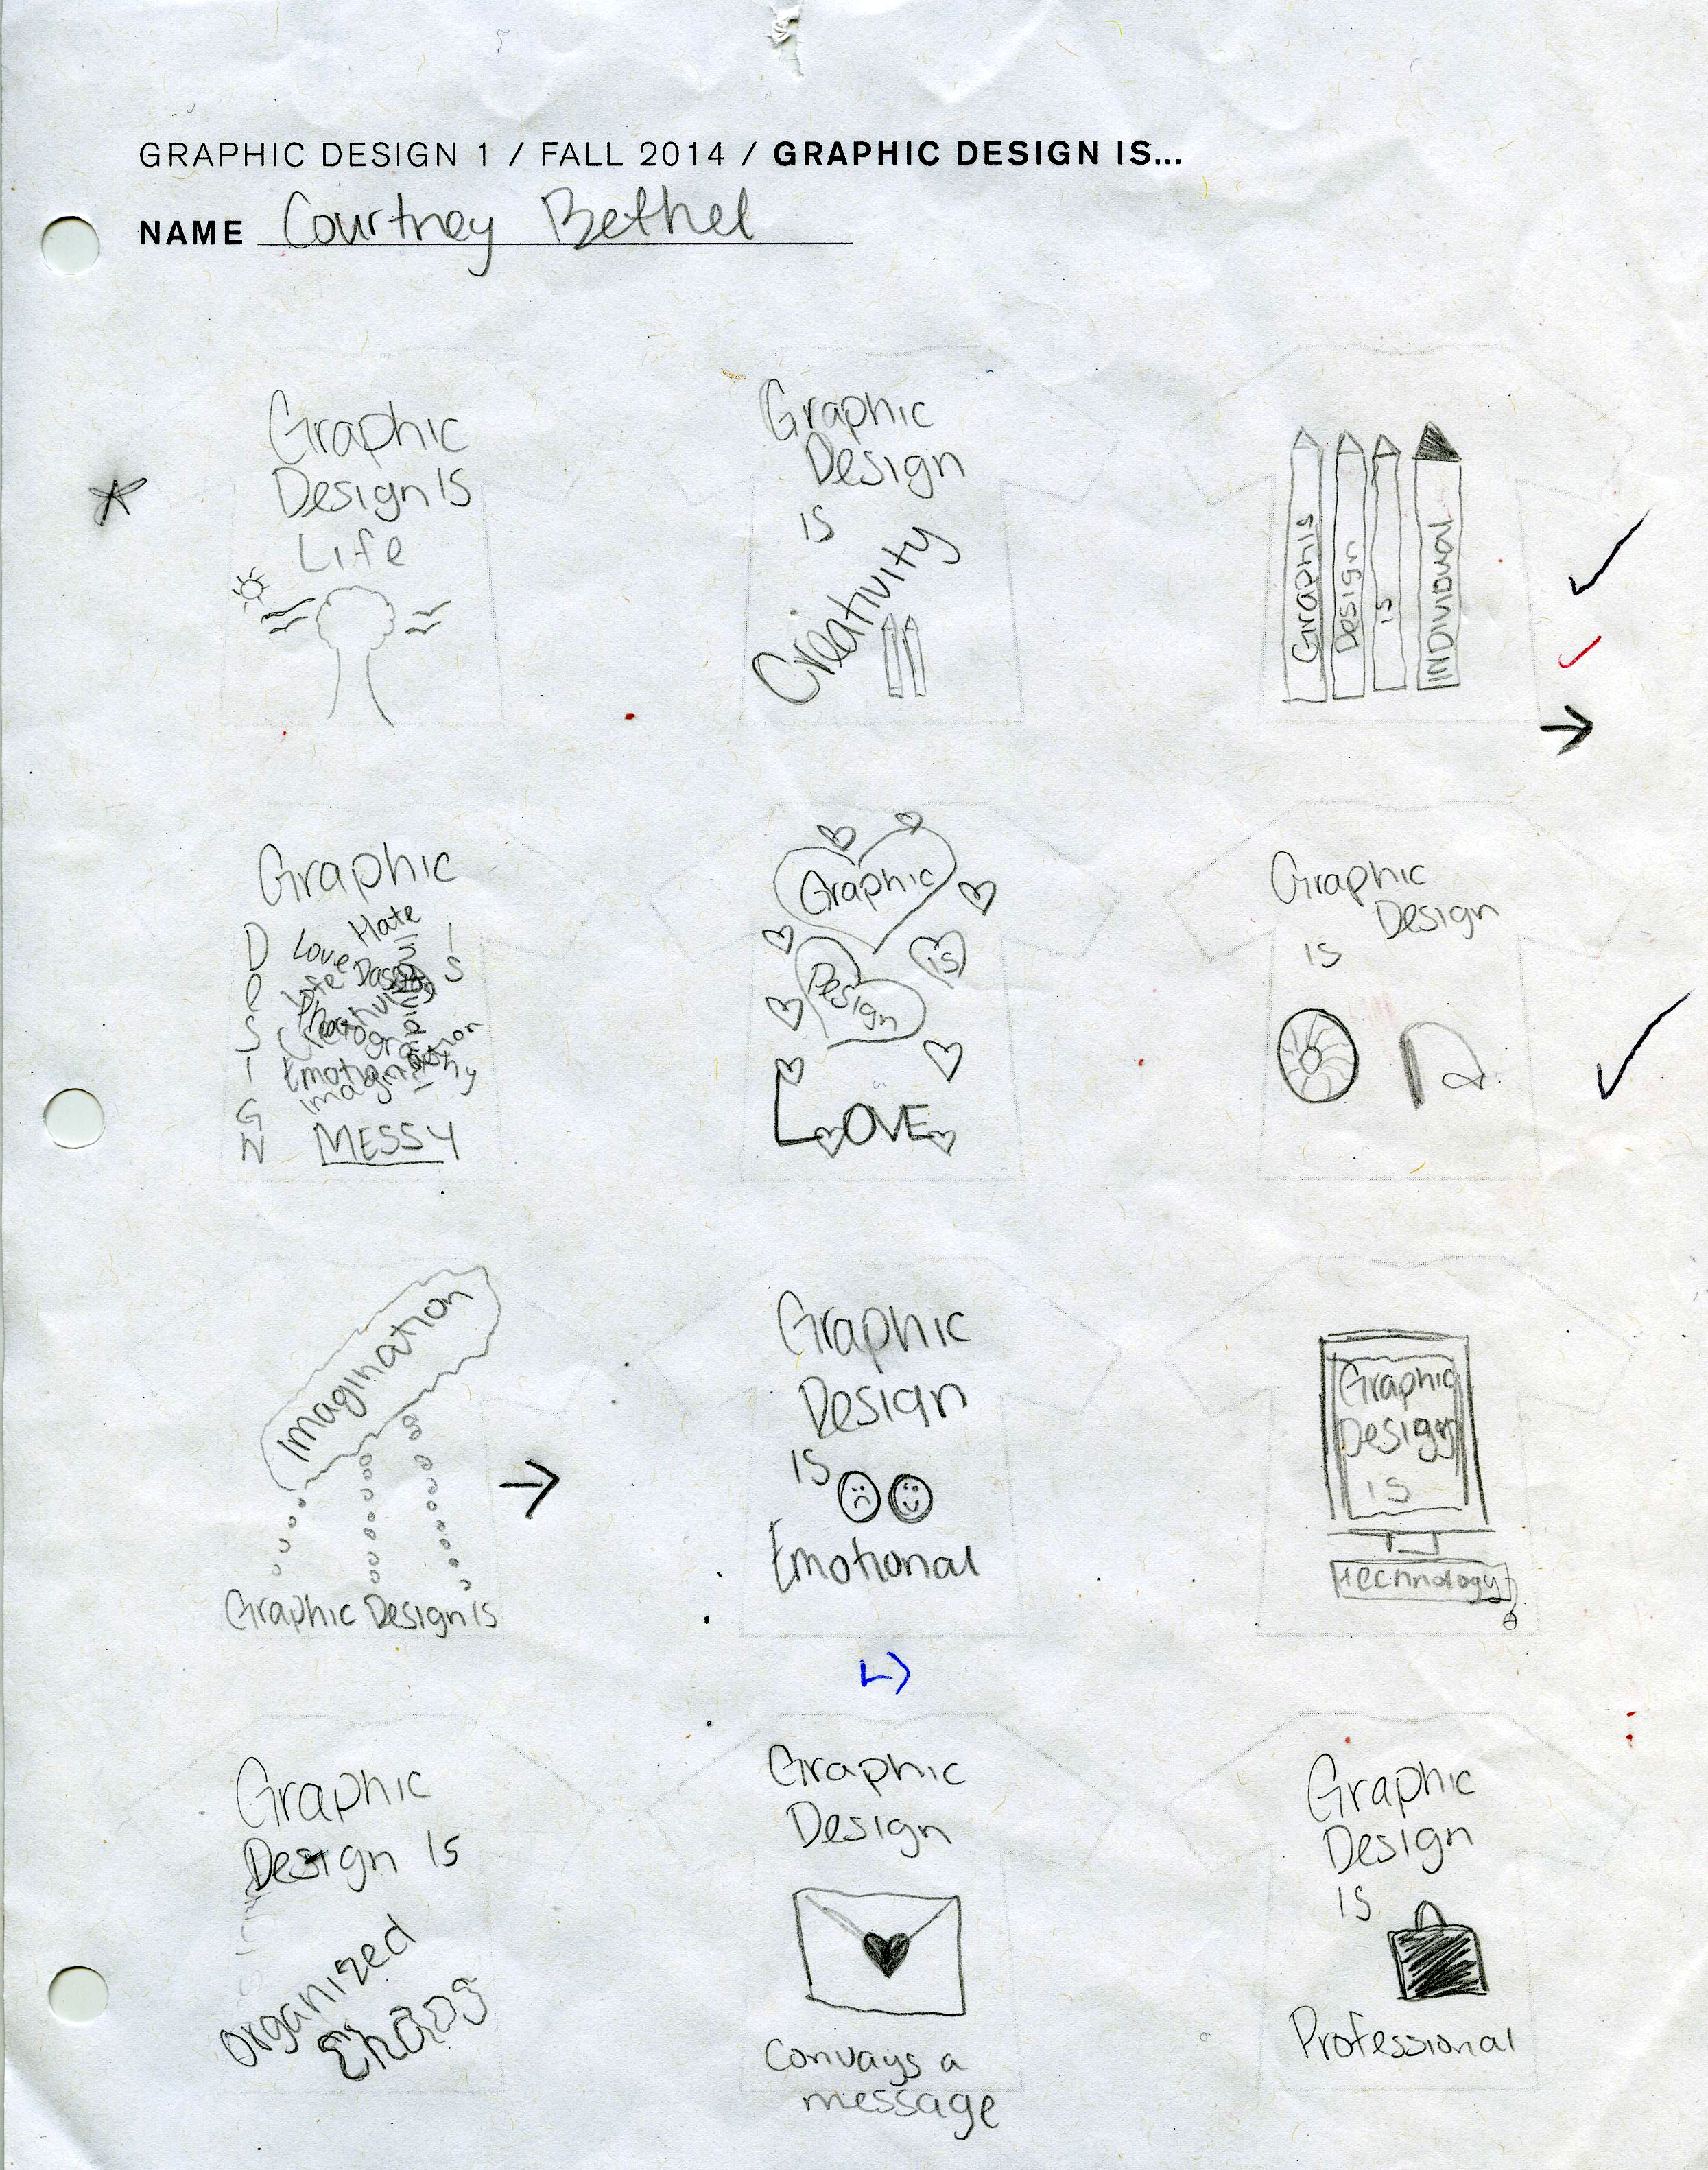 GRAPHIC DESIGN 1 / FALL 2014 / GRAPHIC DESIGN IS...
NAME Courtney Bethel
Graphic
Design is
Life
Graphic
Design
is
Creativity
Graphis
Design
is
INDIVIDUAL
Graphic
Design
Is
Love
Hate
Life
Creativity
Photography
Emotion
Imagination
MESSY
Graphic
Design
is
LOVE
Graphic
Design
is
Imagination
Graphic Design is
Graphic
Design
is
Emotional
Graphic
Design
is
technology
Graphic
Design is
Organized
Chaos
Graphic
Design
Convays a
message
Graphic
Design
is
Professional